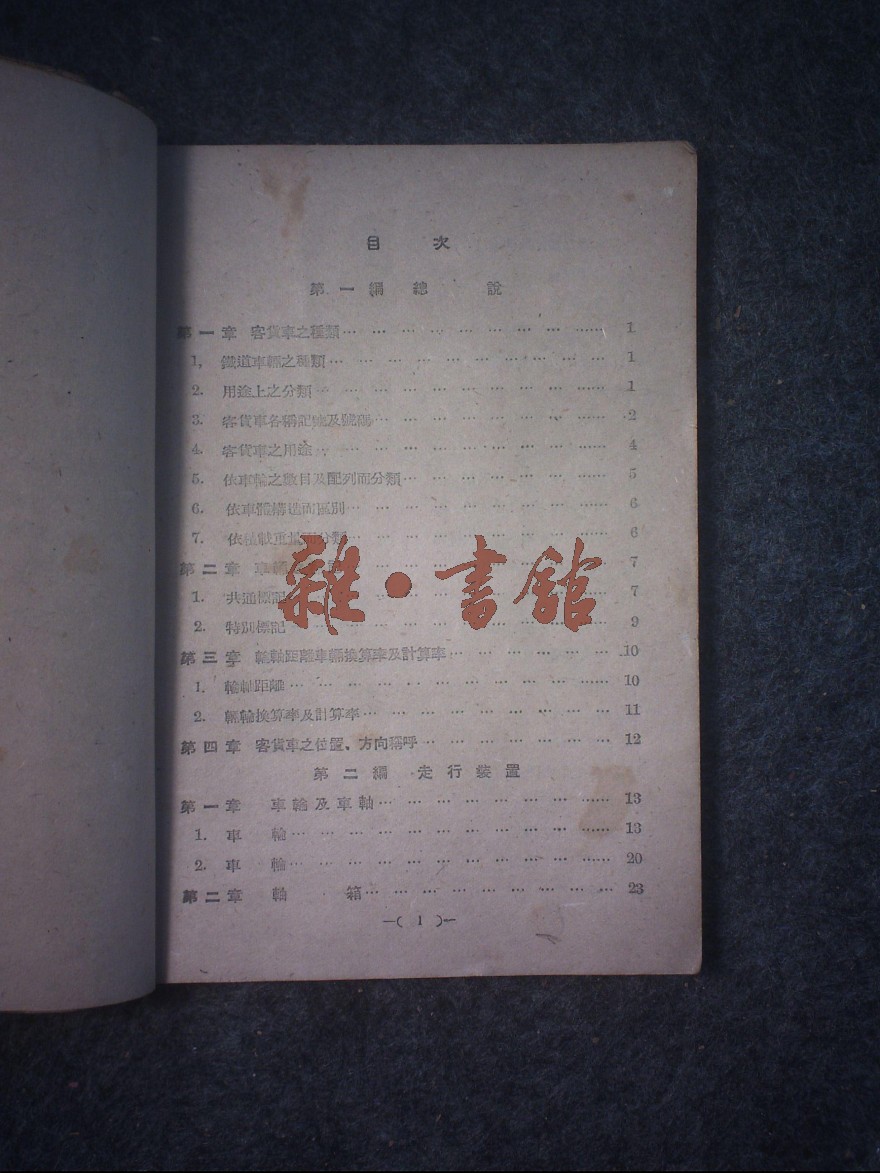 目 次
第一編 總 說
第一章 客貨車之種類… … … … … … … … …… 1
1. 鐵道車輛之種類… … … … … … … … … … 1
2. 用途上之分類… … … … … … … … … …… 1
3. 客貨車各稱記號及號碼… … … … … … … …… 2
4. 客貨車之用途… … … … … … … … … …… 4
5. 依車輪之數目及配列而分類… … … … … … …… 5
6. 依車體構造而區別… … … … … … … … … 6
7. 依 分類… … … … … … … … … 6
第二章 車 … … … 7
1. 共通標記 … … … 7
2. 特別標記 … … … 9
雜·書館
第三章 輪軸距離車輛換算率及計算率… … … … … …10
1. 輪軸距離… … … … … … … … … … … 10
2. 輛輪換算率及計算率… … … … … … … … … 11
第四章 客貨車之位置、方向稱呼… … … … … … …… 12
第二編 走行裝置
第一章 車輪及車軸… … … … … … … …… 13
1. 車 輪… … … … … … … … … … …… 13
2. 車 輪… … … … … … … … … … …… 20
第二章 軸 箱… … … … … … … … … 23
—( 1 )—